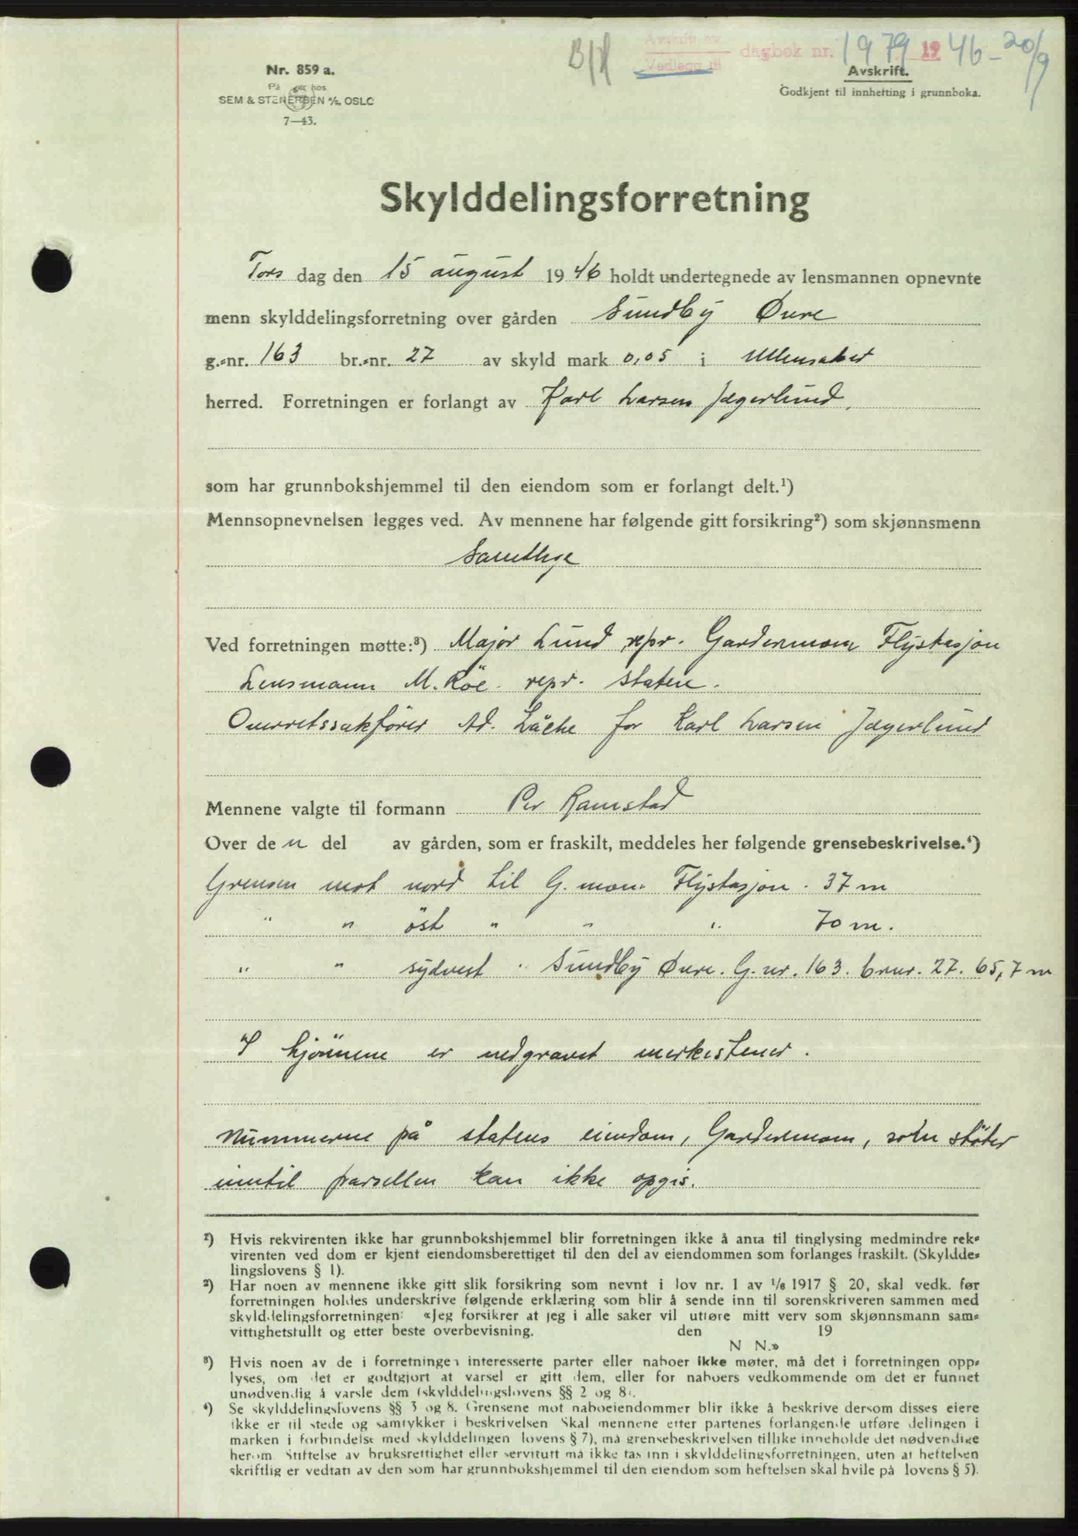 Avskrift av
Vedlegg til
dagbok nr. 1979 1946 - 20/9
B/H
Nr. 859 a.
På lager hos
SEM & STENERSEN A/S, OSLO
7—43.
Avskrift.
Godkjent til innhefting i grunnboka.
Skylddelingsforretning
Tors dag den 15 august 1946 holdt undertegnede av lensmannen opnevnte
menn skylddelingsforretning over gården Sundby Øvre
g.-nr. 163 br.-nr. 27 av skyld mark 0,05 i Ullensaker
herred. Forretningen er forlangt av Karl Larsen Jægerlund,
som har grunnbokshjemmel til den eiendom som er forlangt delt.¹)
Mennsopnevnelsen legges ved. Av mennene har følgende gitt forsikring²) som skjønnsmenn
Samtlige
Ved forretningen møtte:³) Major Lund, repr. Gardermoen Flystasjon
Lensmann M. Röe. repr. staten.
Overretssakfører Ad. Låche for Karl Larsen Jægerlund
Mennene valgte til formann Per Ramstad
Over de n del av gården, som er fraskilt, meddeles her følgende grensebeskrivelse.⁴)
Grensen mot nord til G.moen Flystasjon. 37 m
" " öst " " " 70 m.
" " sydvest " Sundby Øvre. G.nr. 163. brnr. 27. 65,7 m
I hjörnene er nedgravet merkestener.
Nummerne på statens eiendom, Gardermoen, som støter
inntil parsellen kan ikke opgis.
¹) Hvis rekvirenten ikke har grunnbokshjemmel blir forretningen ikke å anta til tinglysing medmindre rek-
virenten ved dom er kjent eiendomsberettiget til den del av eiendommen som forlanges fraskilt. (Skyldde-
lingslovens § 1).
²) Har noen av mennene ikke gitt slik forsikring som nevnt i lov nr. 1 av 1/6 1917 § 20, skal vedk. før
forretningen holdes underskrive følgende erklæring som blir å sende inn til sorenskriveren sammen med
skylddelingsforretningen: «Jeg forsikrer at jeg i alle saker vil utføre mitt verv som skjønnsmann sam-
vittighetsfullt og etter beste overbevisning. den 19
N. N.»
³) Hvis noen av de i forretningen interesserte parter eller naboer ikke møter, må det i forretningen opp-
lyses, om det er godtgjort at varsel er gitt dem, eller for naboers vedkommende om det er funnet
unødvendig å varsle dem (skylddelingslovens §§ 2 og 8).
⁴) Se skylddelingslovens §§ 3 og 8. Grensene mot naboeiendommer blir ikke å beskrive dersom disses eiere
ikke er til stede og samtykker i beskrivelsen. Skal mennene etter partenes forlangende utføre delingen i
marken i forbindelse med skylddelingen (lovens § 7), må grensebeskrivelsen tillike inneholde det nødvendige
herom. Stiftelse av bruksrettighet eller servitutt må ikke tas inn i skylddelingsforretningen, uten at heftelsen
skriftlig er vedtatt av den som har grunnbokshjemmel til den eiendom som heftelsen skal hvile på (lovens § 5).